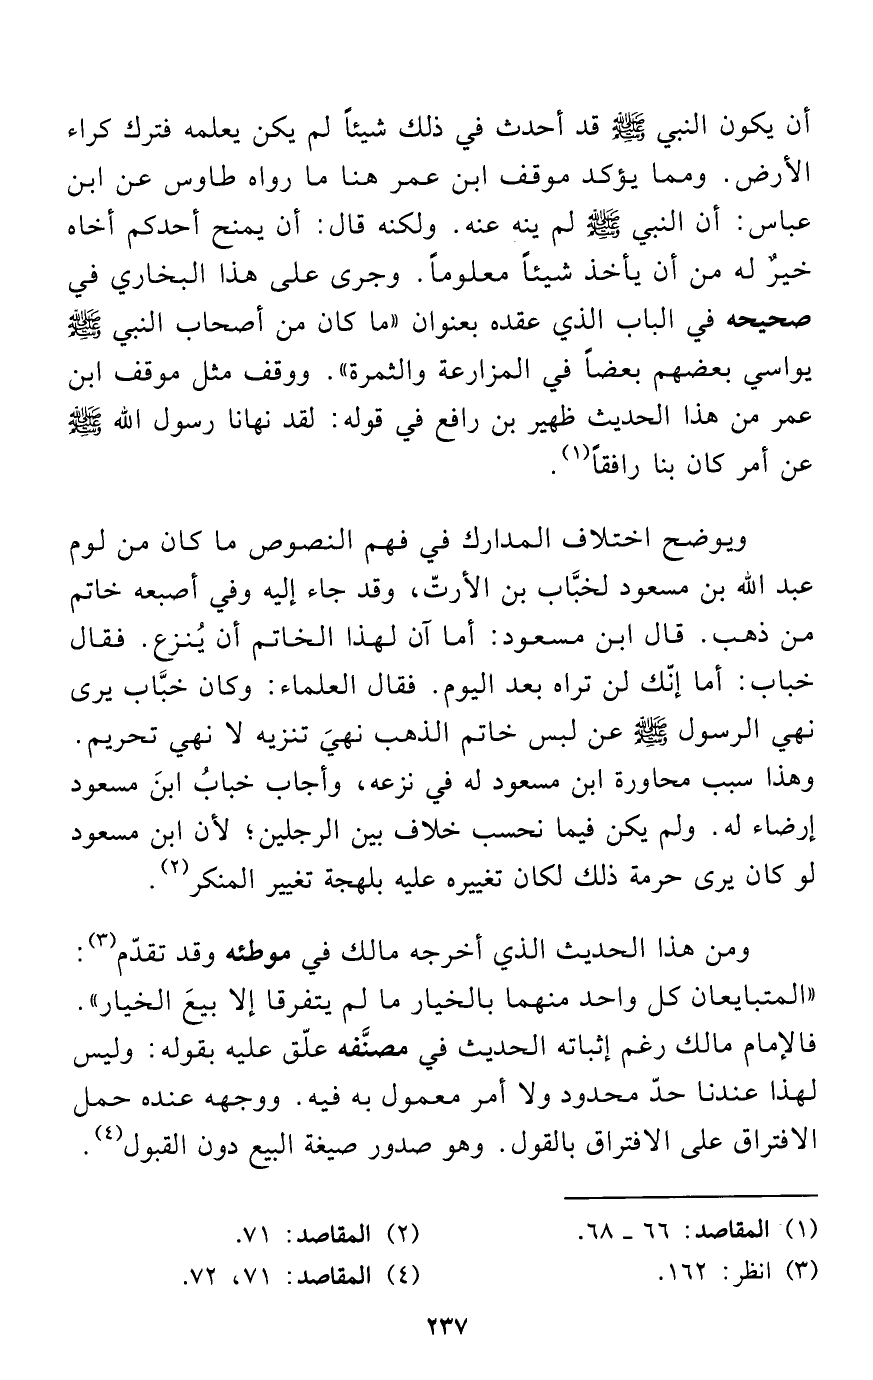 أن يكون النبي ﷺ قد أحدث في ذلك شيئاً لم يكن يعلمه فترك كراء
الأرض. ومما يؤكد موقف ابن عمر هنا ما رواه طاوس عن ابن
عباس: أن النبي ﷺ لم ينه عنه. ولكنه قال: أن يمنح أحدكم أخاه
خيرٌ له من أن يأخذ شيئاً معلوماً. وجرى على هذا البخاري في
صحيحه في الباب الذي عقده بعنوان «ما كان من أصحاب النبي ﷺ
يواسي بعضهم بعضاً في المزارعة والثمرة». ووقف مثل موقف ابن
عمر من هذا الحديث ظهير بن رافع في قوله: لقد نهانا رسول الله ﷺ
عن أمر كان بنا رافقاً(١).
ويوضح اختلاف المدارك في فهم النصوص ما كان من لوم
عبد الله بن مسعود لخبَّاب بن الأرتّ، وقد جاء إليه وفي أصبعه خاتم
من ذهب. قال ابن مسعود: أما آن لهذا الخاتم أن يُنزع. فقال
خباب: أما إنّك لن تراه بعد اليوم. فقال العلماء: وكان خبَّاب يرى
نهي الرسول ﷺ عن لبس خاتم الذهب نهيَ تنزيه لا نهي تحريم.
وهذا سبب محاورة ابن مسعود له في نزعه، وأجاب خبابُ ابنَ مسعود
إرضاء له. ولم يكن فيما نحسب خلاف بين الرجلين؛ لأن ابن مسعود
لو كان يرى حرمة ذلك لكان تغييره عليه بلهجة تغيير المنكر(٢).
ومن هذا الحديث الذي أخرجه مالك في موطئه وقد تقدّم(٣):
«المتبايعان كل واحد منهما بالخيار ما لم يتفرقا إلا بيعَ الخيار».
فالإمام مالك رغم إثباته الحديث في مصنَّفه علّق عليه بقوله: وليس
لهذا عندنا حدّ محدود ولا أمر معمول به فيه. ووجهه عنده حمل
الافتراق على الافتراق بالقول. وهو صدور صيغة البيع دون القبول(٤).
(١) المقاصد: ٦٦ ـ ٦٨.
(٢) المقاصد: ٧١.
(٣) انظر: ١٦٢.
(٤) المقاصد: ٧١، ٧٢.
٢٣٧